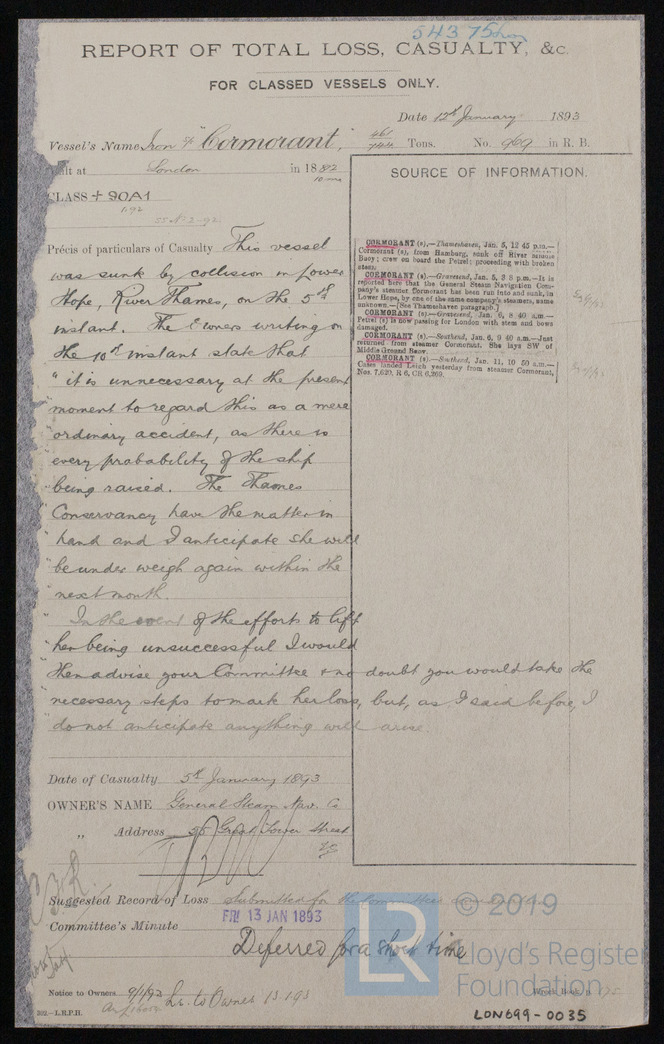 54375 Lon
REPORT OF TOTAL LOSS, CASUALTY, &c.
FOR CLASSED VESSELS ONLY.
Date 12th January 1893
Vessel's Name Iron "Cormorant", 461/744 Tons. No. 969 in R. B.
Built at London in 1882
10 mo
CLASS + 90A1
1.92
SOURCE OF INFORMATION.
Précis of particulars of Casualty This vessel
was sunk by collision in Lower
Hope, River Thames, on the 5th
instant. The Owners writing on
the 10th instant state that
"it is unnecessary at the present
"moment to regard this as a mere
"ordinary accident, as there is
"every probability of the ship
"being raised. The Thames
"Conservancy have the matter in
"hand and I anticipate she will
"be under weigh again within the
"next month.
"In the event of the efforts to lift
"her being unsuccessful I would
"then advise your Committee & no doubt you would take the
"necessary steps to mark her loss, but, as I said before, I
"do not anticipate anything will arise.
CORMORANT (s).—Thameshaven, Jan. 5, 12 45 p.m.—
Cormorant (s), from Hamburg, sunk off River Middle
Buoy; crew on board the Petrel: proceeding with broken
stem.
CORMORANT (s).—Gravesend, Jan. 5, 3 8 p.m.—It is
reported here that the General Steam Navigation Com-
pany's steamer Cormorant has been run into and sunk, in
Lower Hope, by one of the same company's steamers, name
unknown.—[See Thameshaven paragraph.]
CORMORANT (s).—Gravesend, Jan. 6, 8 40 a.m.—
Petrel (s) is now passing for London with stem and bows
damaged.
CORMORANT (s).—Southend, Jan. 6, 9 40 a.m.—Just
returned from steamer Cormorant. She lays SW of
Middle Ground Buoy.
CORMORANT (s).—Southend, Jan. 11, 10 50 a.m.—
Cases landed Leigh yesterday from steamer Cormorant,
Nos. 7,620, R 6, CR 6,269.
Date of Casualty 5th January 1893
OWNER'S NAME General Steam Nav. Co
" Address 55 Great Tower Street
EC
Suggested Record of Loss Submitted for the Committee's consideration
Committee's Minute FRI 13 JAN 1893
Deferred for a short time
Notice to Owners 9/1/93 Lr. to Owner 13.1.93
302.—L.R.P.H.
Wreck Book, p. 195
LON699-0035
LR
© 2019
Lloyd's Register
Foundation